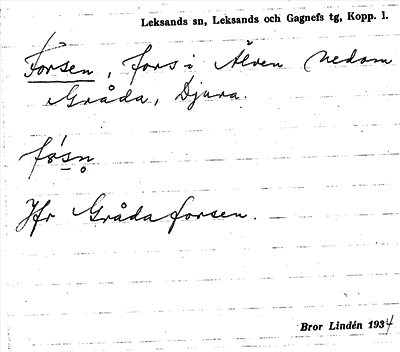 Leksands sn, Leksands och Gagnefs tg, Kopp. l.
Forsen, fors i Älven nedom
Gråda, Djura.
fo̱ʹsn̥
Jfr Grådaforsen.
Bror Lindén 1934